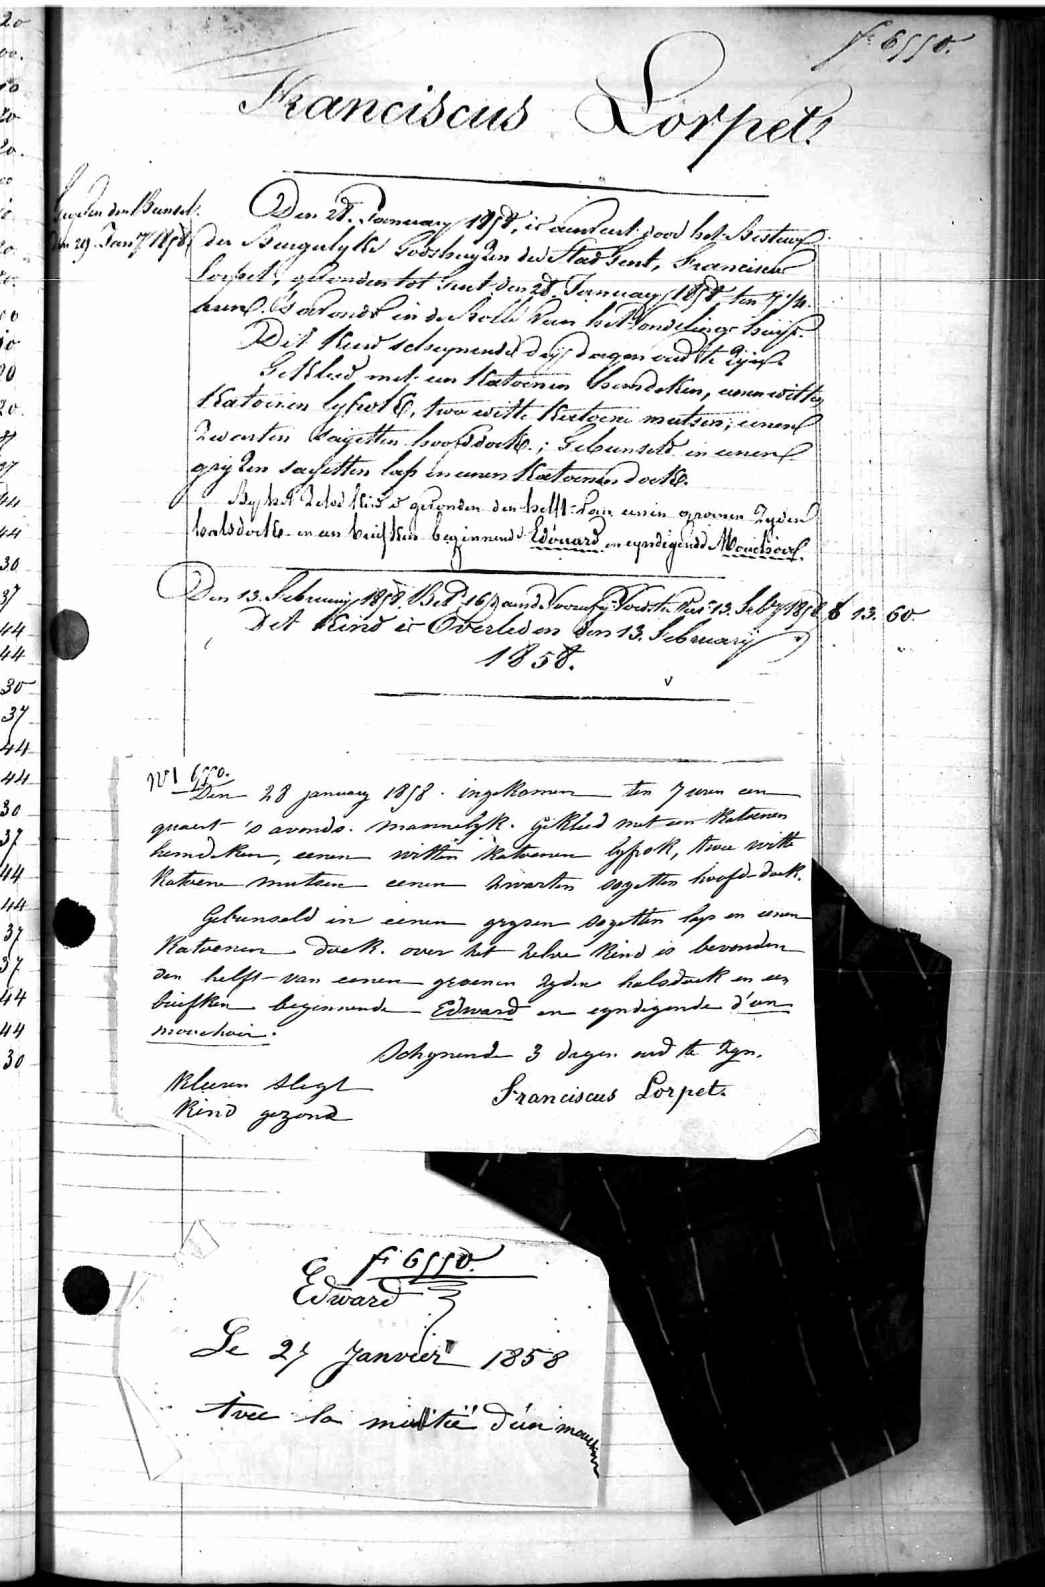 f. 6550.
Franciscus Lorpet.
den Bundel
den 29. Jan.y 1858
Den 28. January 1858, is aanveut door het Bestuur
der Burgerlyke Godshuyzen der Stad Gent, Franciscus
Lorpet, gevonden tot Gent den 28. January 1858, ten 7 1/4
uren 's avonds in de Rolle van het Vondelings huijs.
Dit Kind schynende drij dagen oud te zijn.
Gekleed met een Katoenen hemdeken, eenen witten
Katoenen lyfrok, twee witte Katoene mutsen, eenen
Zwarten sayetten hoofddoek; Gebunseld in eenen
gryzen sayetten lap en eenen Katoenen doek.
By het Zelve Kind is gevonden den helft van eenen groenen Zyden
halsdoek en een briefken beginnende Edouard en eyndigende Mouchoir.
Den 13. February 1858. Bet. 16 Voorsch. 13. Feb.y 1858 f 13. 60.
Det Kind is Overleden den 13. February
1858.
N.1 6550.
Den 28 january 1858. ingekomen ten 7 uren een
quaert 's avonds. mannelyk. Gekleed met een Katoenen
hemdeken, eenen witten Katoenen lyfrok, twee witte
Katoene mutsen eenen zwarten sayetten hoofd-doek.
Gebunseld in eenen grysen sayetten lap en eenen
Katoenen doek. over het zelve Kind is bevonden
den helft van eenen groenen zyden halsdoek en een
briefken beginnende Edward en eyndigende d'un
mouchoir.
Schynende 3 dagen oud te zyn.
Kleeren slegt
Franciscus Lorpet.
Kind gezond
f. 6550.
Edward
Le 27 Janvier 1858
Avec la moitié d'un mouchoir